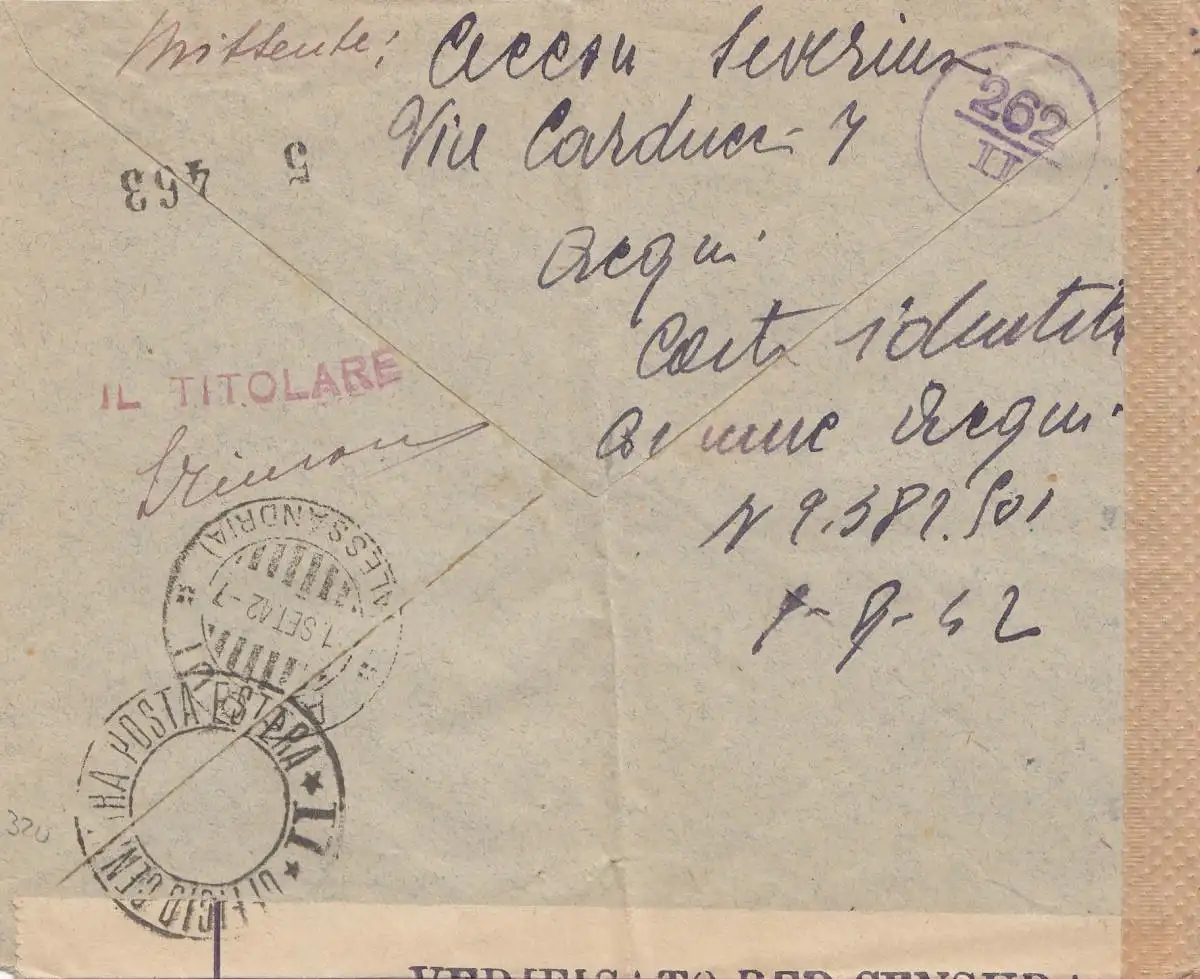 Mittente: Ceccon Severino
Via Carducci 7
262
II
5
463
Acqui
Carta identità
Comune Acqui
IL TITOLARE
N 9.382.501
ALESSANDRIA)
1. SET 42-7
9-9-42
POSTA ESTERA
11
UFFICIO CEN
320
VERIFICATO PER CENSURA